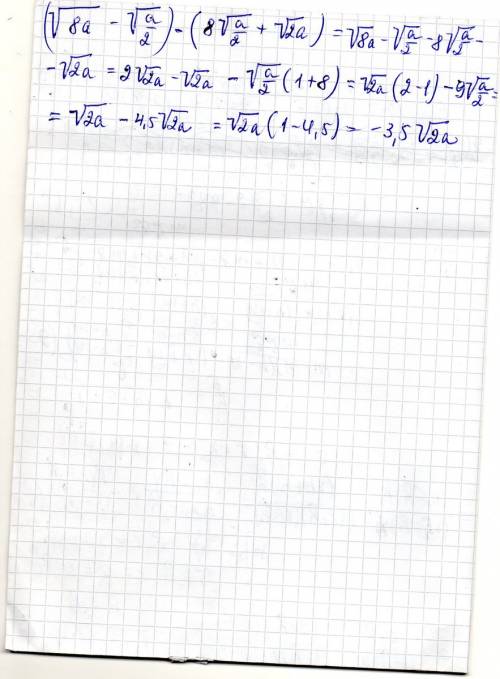 (√8a - √a/2) - (8√a/2 + √2a) = √8a - √a/2 - 8√a/2 -
- √2a = 2√2a - √2a - √a/2 (1+8) = √2a (2-1) - 9√a/2 =
= √2a - 4,5√2a = √2a (1-4,5) = -3,5√2a